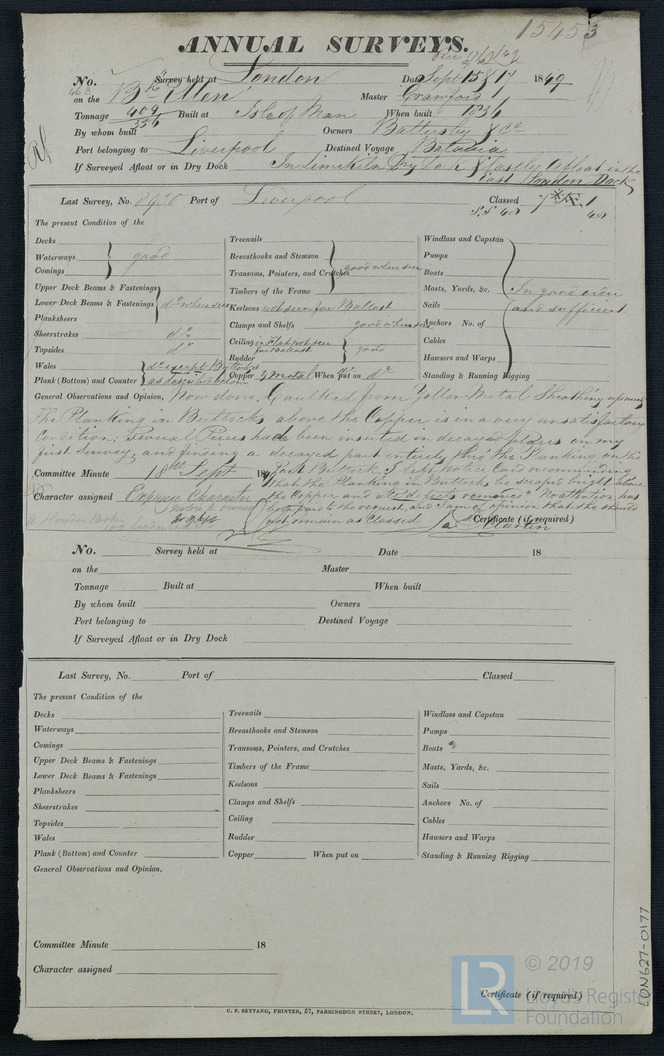 15453
ANNUAL SURVEYS.
No. Survey held at London Date Sept 15 & 17 1849
463 on the Bk Ellen Master Crawford
Tonnage 402/356 Built at Isle of Man When built 1836
By whom built Owners Battersby & Co
Port belonging to Liverpool Destined Voyage Batavia
If Surveyed Afloat or in Dry Dock In Limekiln Dry Dock & lastly afloat in the
East London Dock
Last Survey, No. Port of Liverpool Classed
The present Condition of the
Decks
Waterways good
Comings
Upper Deck Beams & Fastenings
Lower Deck Beams & Fastenings do when seen
Planksheers
Sheerstrakes do
Topsides do
Wales do except Buttocks
Plank (Bottom) and Counter as described below
Treenails
Breasthooks and Stemson
Transoms, Pointers, and Crutches good when seen
Timbers of the Frame
Keelsons not seen for Ballast
Clamps and Shelfs good when seen
Ceiling in Flat not seen for ballast
Rudder good
Copper Y Metal When put on do
Windlass and Capstan
Pumps
Boats
Masts, Yards, &c. In good order
Sails and sufficient
Anchors No. of
Cables
Hawsers and Warps
Standing & Running Rigging
General Observations and Opinion, Now done. Caulked from Yellow Metal Sheathing upwards
The Planking in Buttocks above the Copper is in a very unsatisfactory
Condition. Several Pieces had been inserted in decayed places on my
first Survey, and finding a decayed part entirely thro the Planking on the
Port Buttock, I left notice Card recommending
Committee Minute 18th Sept 184
that the Planking in Buttocks be scraped bright above
Character assigned Expunge Character
the Copper and removed. No attention has
notice to owner
been paid to the request, and I am of opinion that she should
not remain as Classed Certificate (if required)
Jas Martin
No. Survey held at Date 18
on the Master
Tonnage Built at When built
By whom built Owners
Port belonging to Destined Voyage
If Surveyed Afloat or in Dry Dock
Last Survey, No. Port of Classed
The present Condition of the
Decks
Waterways
Comings
Upper Deck Beams & Fastenings
Lower Deck Beams & Fastenings
Planksheers
Sheerstrakes
Topsides
Wales
Plank (Bottom) and Counter
Treenails
Breasthooks and Stemson
Transoms, Pointers, and Crutches
Timbers of the Frame
Keelsons
Clamps and Shelfs
Ceiling
Rudder
Copper When put on
Windlass and Capstan
Pumps
Boats
Masts, Yards, &c.
Sails
Anchors No. of
Cables
Hawsers and Warps
Standing & Running Rigging
General Observations and Opinion,
Committee Minute 18
Character assigned
Certificate (if required)
C. F. SEYFANG, PRINTER, 57, FARRINGDON STREET, LONDON.
LON627-0177
LR
© 2019
Lloyd's Register
Foundation